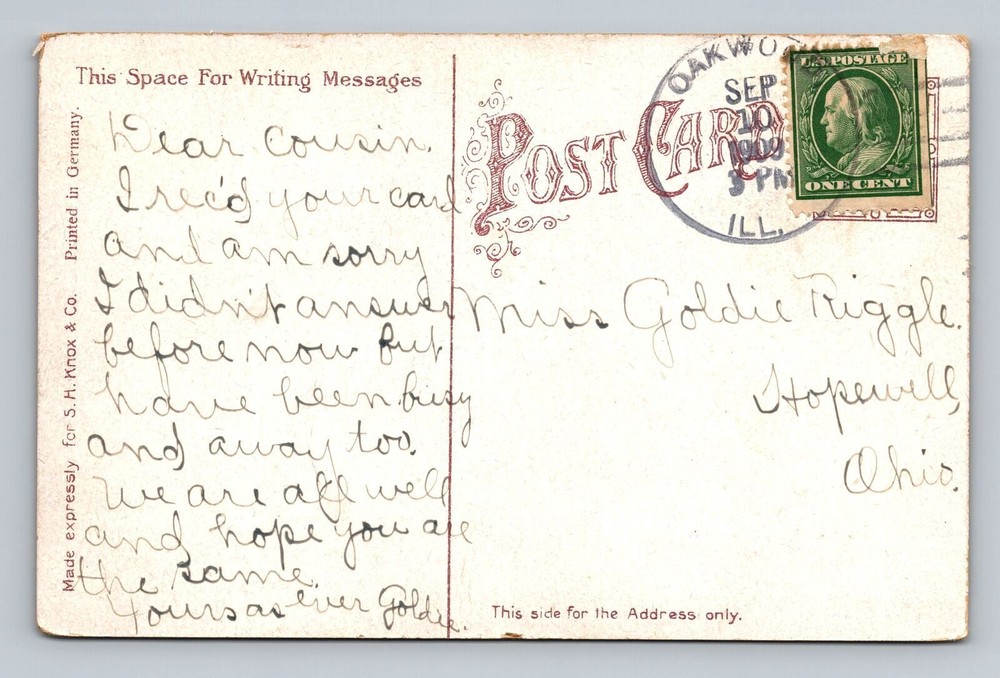 This Space For Writing Messages
Dear Cousin.
I rec'd your card
and am sorry
I didn't answer
before now but
have been busy
and away too.
We are all well
and hope you are
the same.
Yours as ever Goldie.
Made expressly for S. H. Knox & Co. Printed in Germany.
POST CARD
OAKWOO
SEP
10
1909
3 PM
ILL.
U.S. POSTAGE
ONE CENT
Miss Goldie Riggle.
Hopewell,
Ohio.
This side for the Address only.